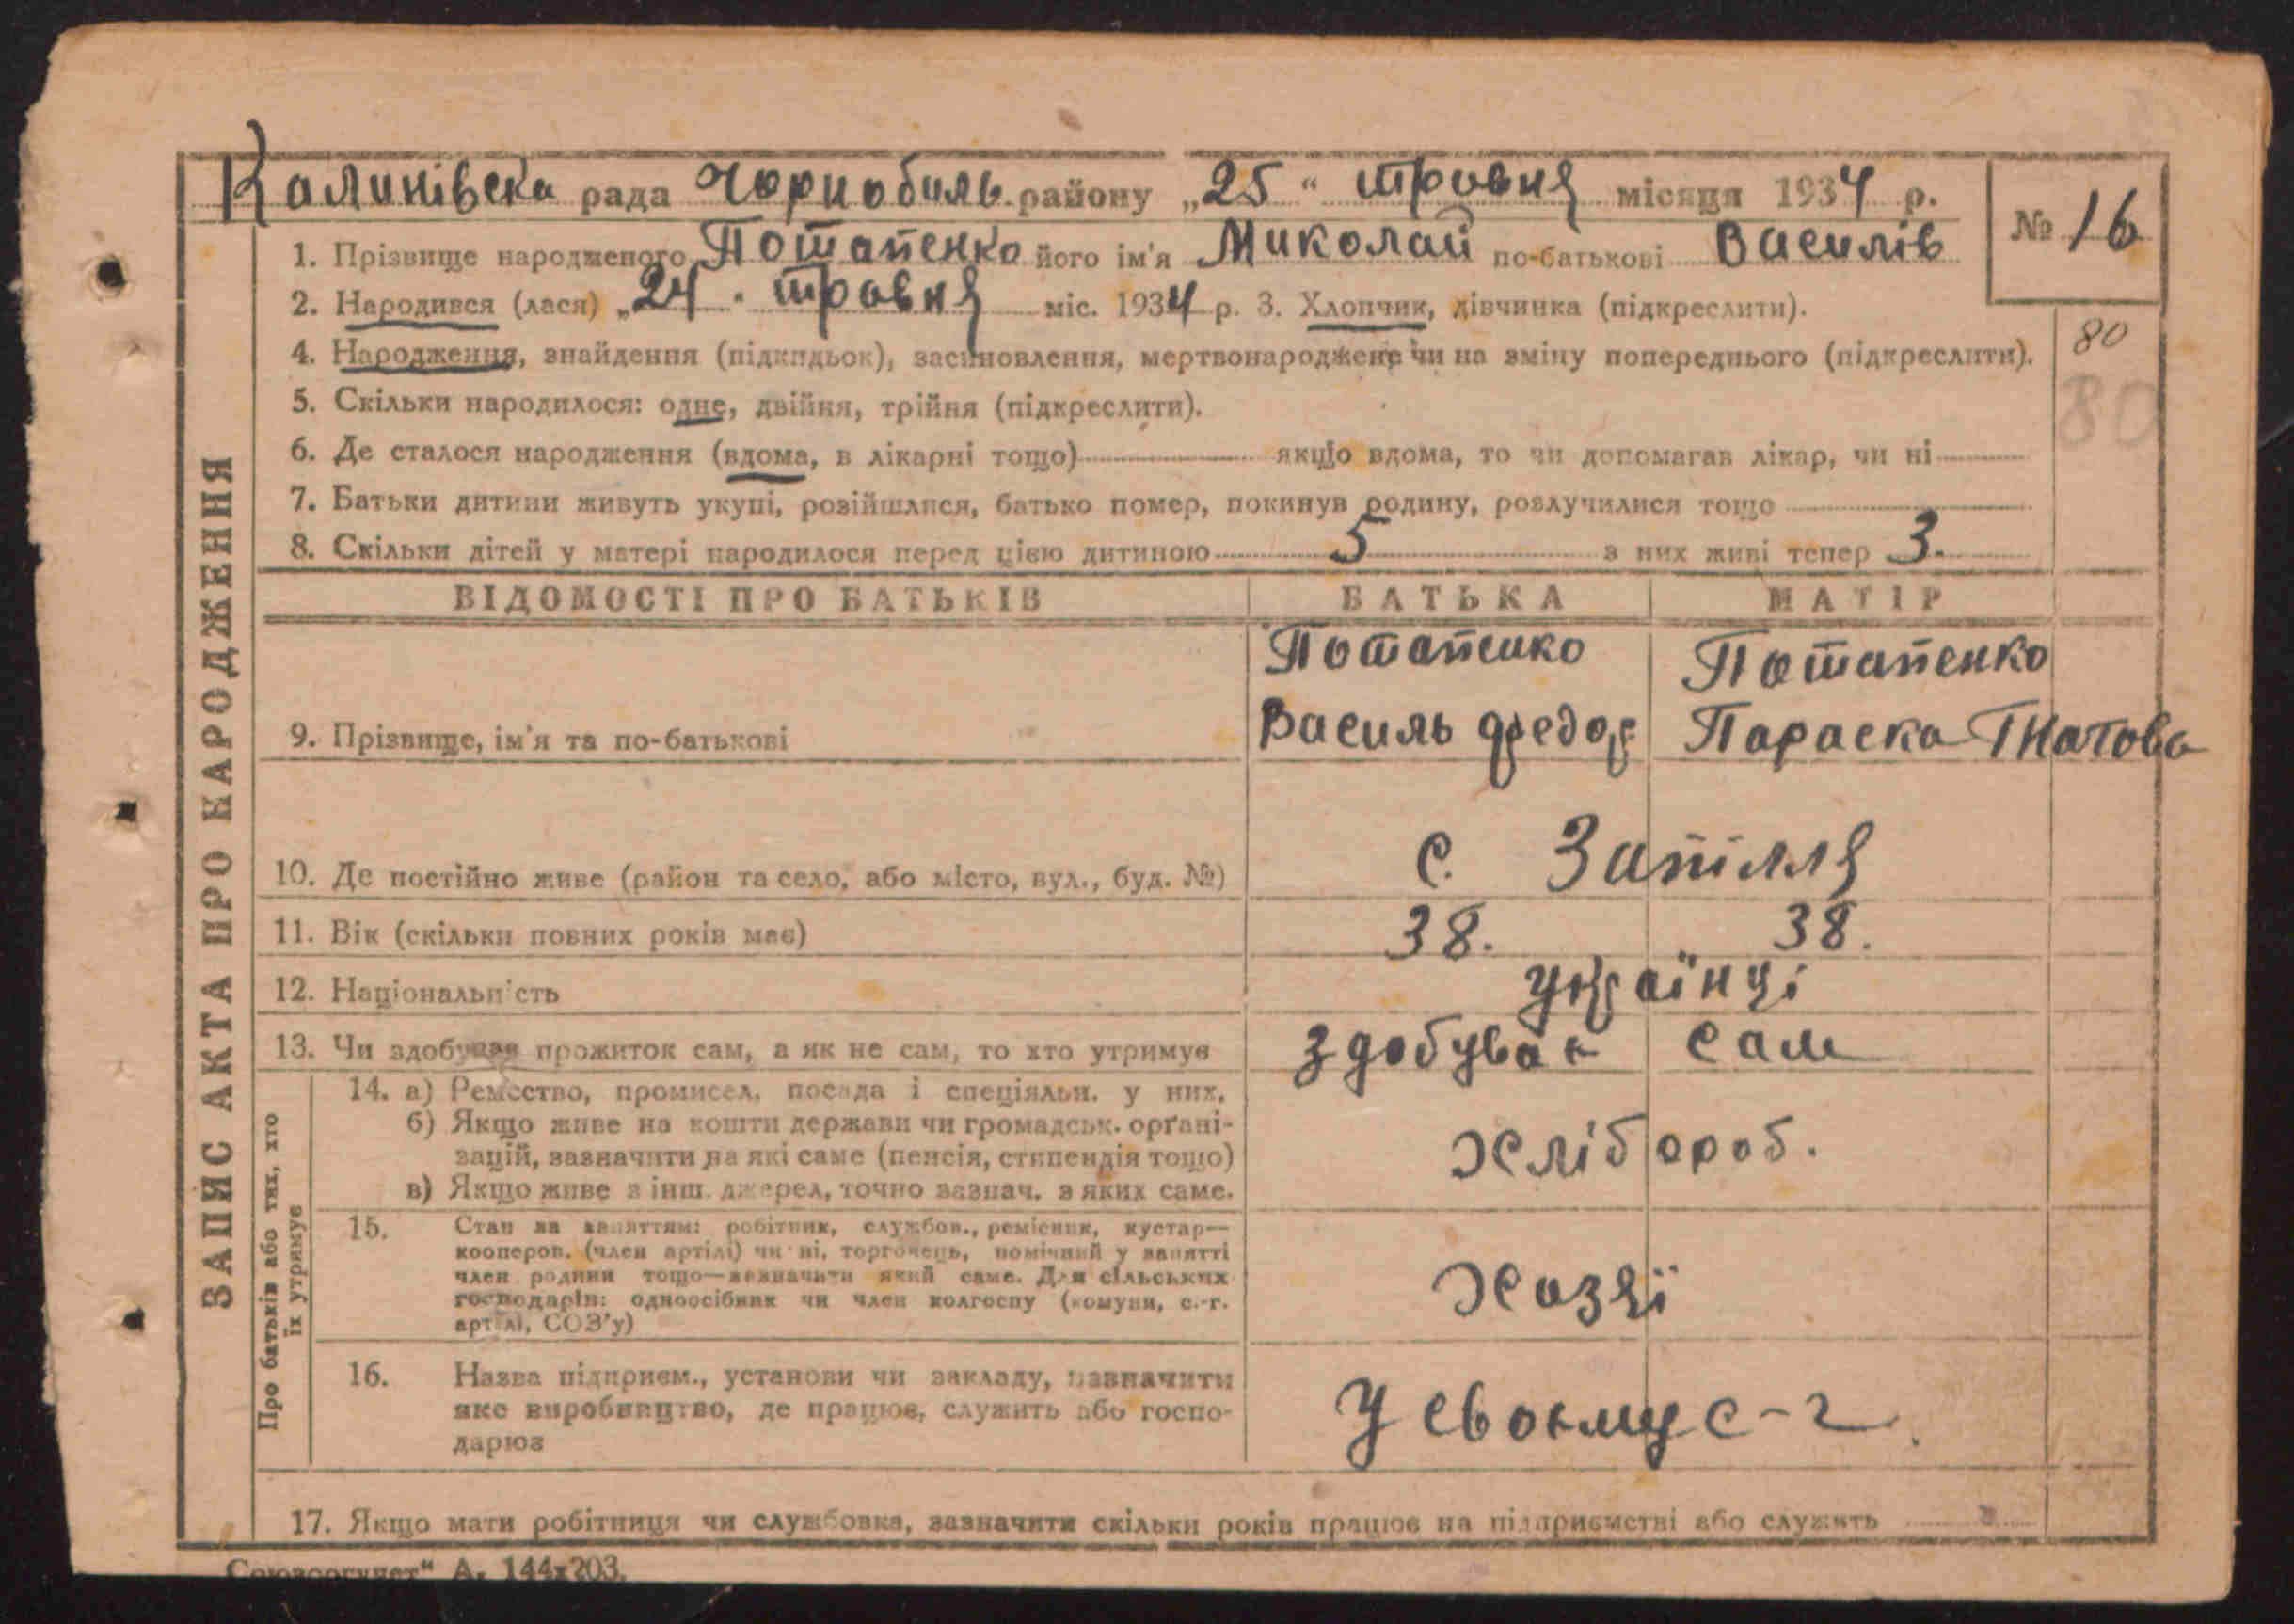 Калинівска рада Чорнобиль району „25" травня місяця 1934 р.
№ 16
1. Прізвище народженого Потапенко його ім'я Миколай по-батькові Василів
2. Народився (лася) „24" травня міс. 1934 р. 3. Хлопчик, дівчинка (підкреслити).
80
4. Народження, знайдення (підкидьок), засиновлення, мертвонароджене чи на зміну попереднього (підкреслити).
80
5. Скільки народилося: одне, двійня, трійня (підкреслити).
6. Де сталося народження (вдома, в лікарні тощо) якщо вдома, то чи допомагав лікар, чи ні
7. Батьки дитини живуть укупі, розійшлися, батько помер, покинув родину, розлучилися тощо
8. Скільки дітей у матері народилося перед цією дитиною 5 з них живі тепер 3.
ЗАПИС АКТА ПРО НАРОДЖЕННЯ
ВІДОМОСТІ ПРО БАТЬКІВ БАТЬКА МАТІР
Потапенко Потапенко
9. Прізвище, ім'я та по-батькові Василь Федор Параска Гнатова
10. Де постійно живе (район та село, або місто, вул., буд. №) с. Запілля
11. Вік (скільки повних років має) 38. 38.
12. Національність українці
13. Чи здобував прожиток сам, а як не сам, то хто утримує здобував сам
Про батьків або тих, хто
їх утримує
14. а) Ремество, промисел, посада і спеціяльн. у них.
б) Якщо живе на кошти держави чи громадськ. орґані-
зацій, зазначити на які саме (пенсія, стипендія тощо)
хлібороб.
в) Якщо живе з інш. джерел, точно зазнач. з яких саме.
15. Стан за заняттям: робітник, службов., ремісник, кустар—
кооперов. (член артілі) чи ні, торговець, помічний у занятті
член родини тощо—зазначити який саме. Для сільських
господарів: одноосібник чи член колгоспу (комуни, с.-г.
артілі, СОЗ'у)
Хазяї
16. Назва підприєм., установи чи закладу, зазначити
яке виробництво, де працює, служить або госпо-
дарює
У своєму с-г
17. Якщо мати робітниця чи службовка, зазначити скільки років працює на підприємстві або служить
А. 144х203.